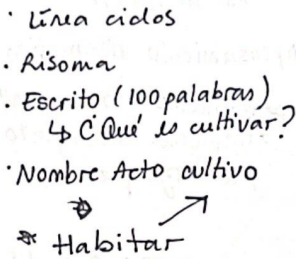 · Línea ciclos
· Risoma
· Escrito (100 palabras)
↳ ¿Qué es cultivar?
· Nombre Acto cultivo
* Habitar